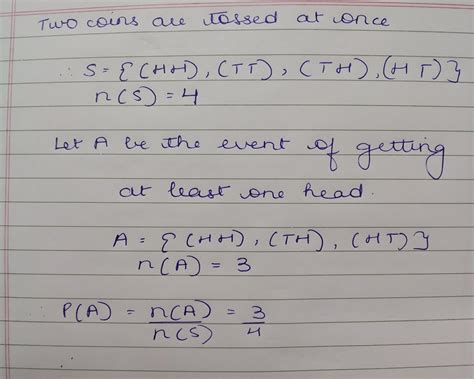 Two coins are tossed at once
∴ S = {(HH), (TT), (TH), (HT)}
n(S) = 4
Let A be the event of getting
at least one head.
A = {(HH), (TH), (HT)}
n(A) = 3
∴ P(A) = n(A)/n(S) = 3/4